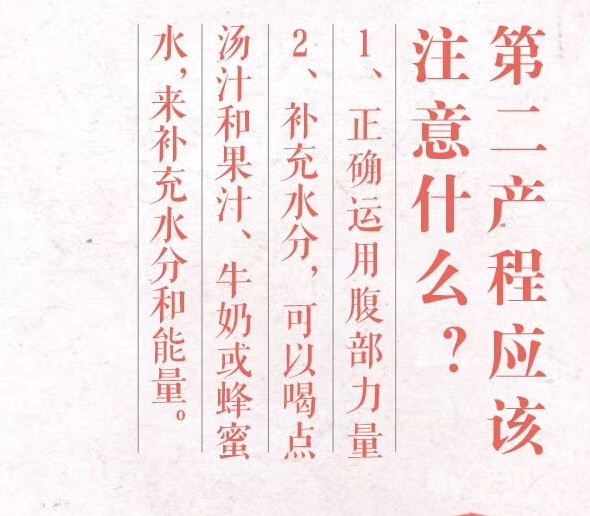 第二产程应该
注意什么？
1、正确运用腹部力量
2、补充水分，可以喝点
汤汁和果汁、牛奶或蜂蜜
水，来补充水分和能量。